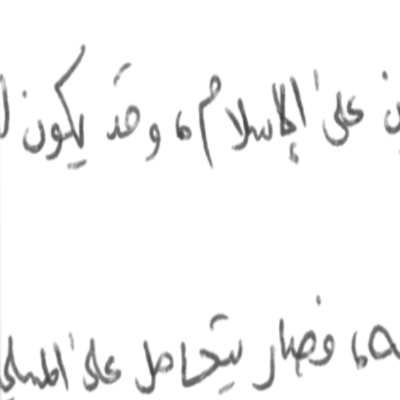 ين على الإسلام، وقد يكون ل
ـه، فصار يتحامل على المسلمي